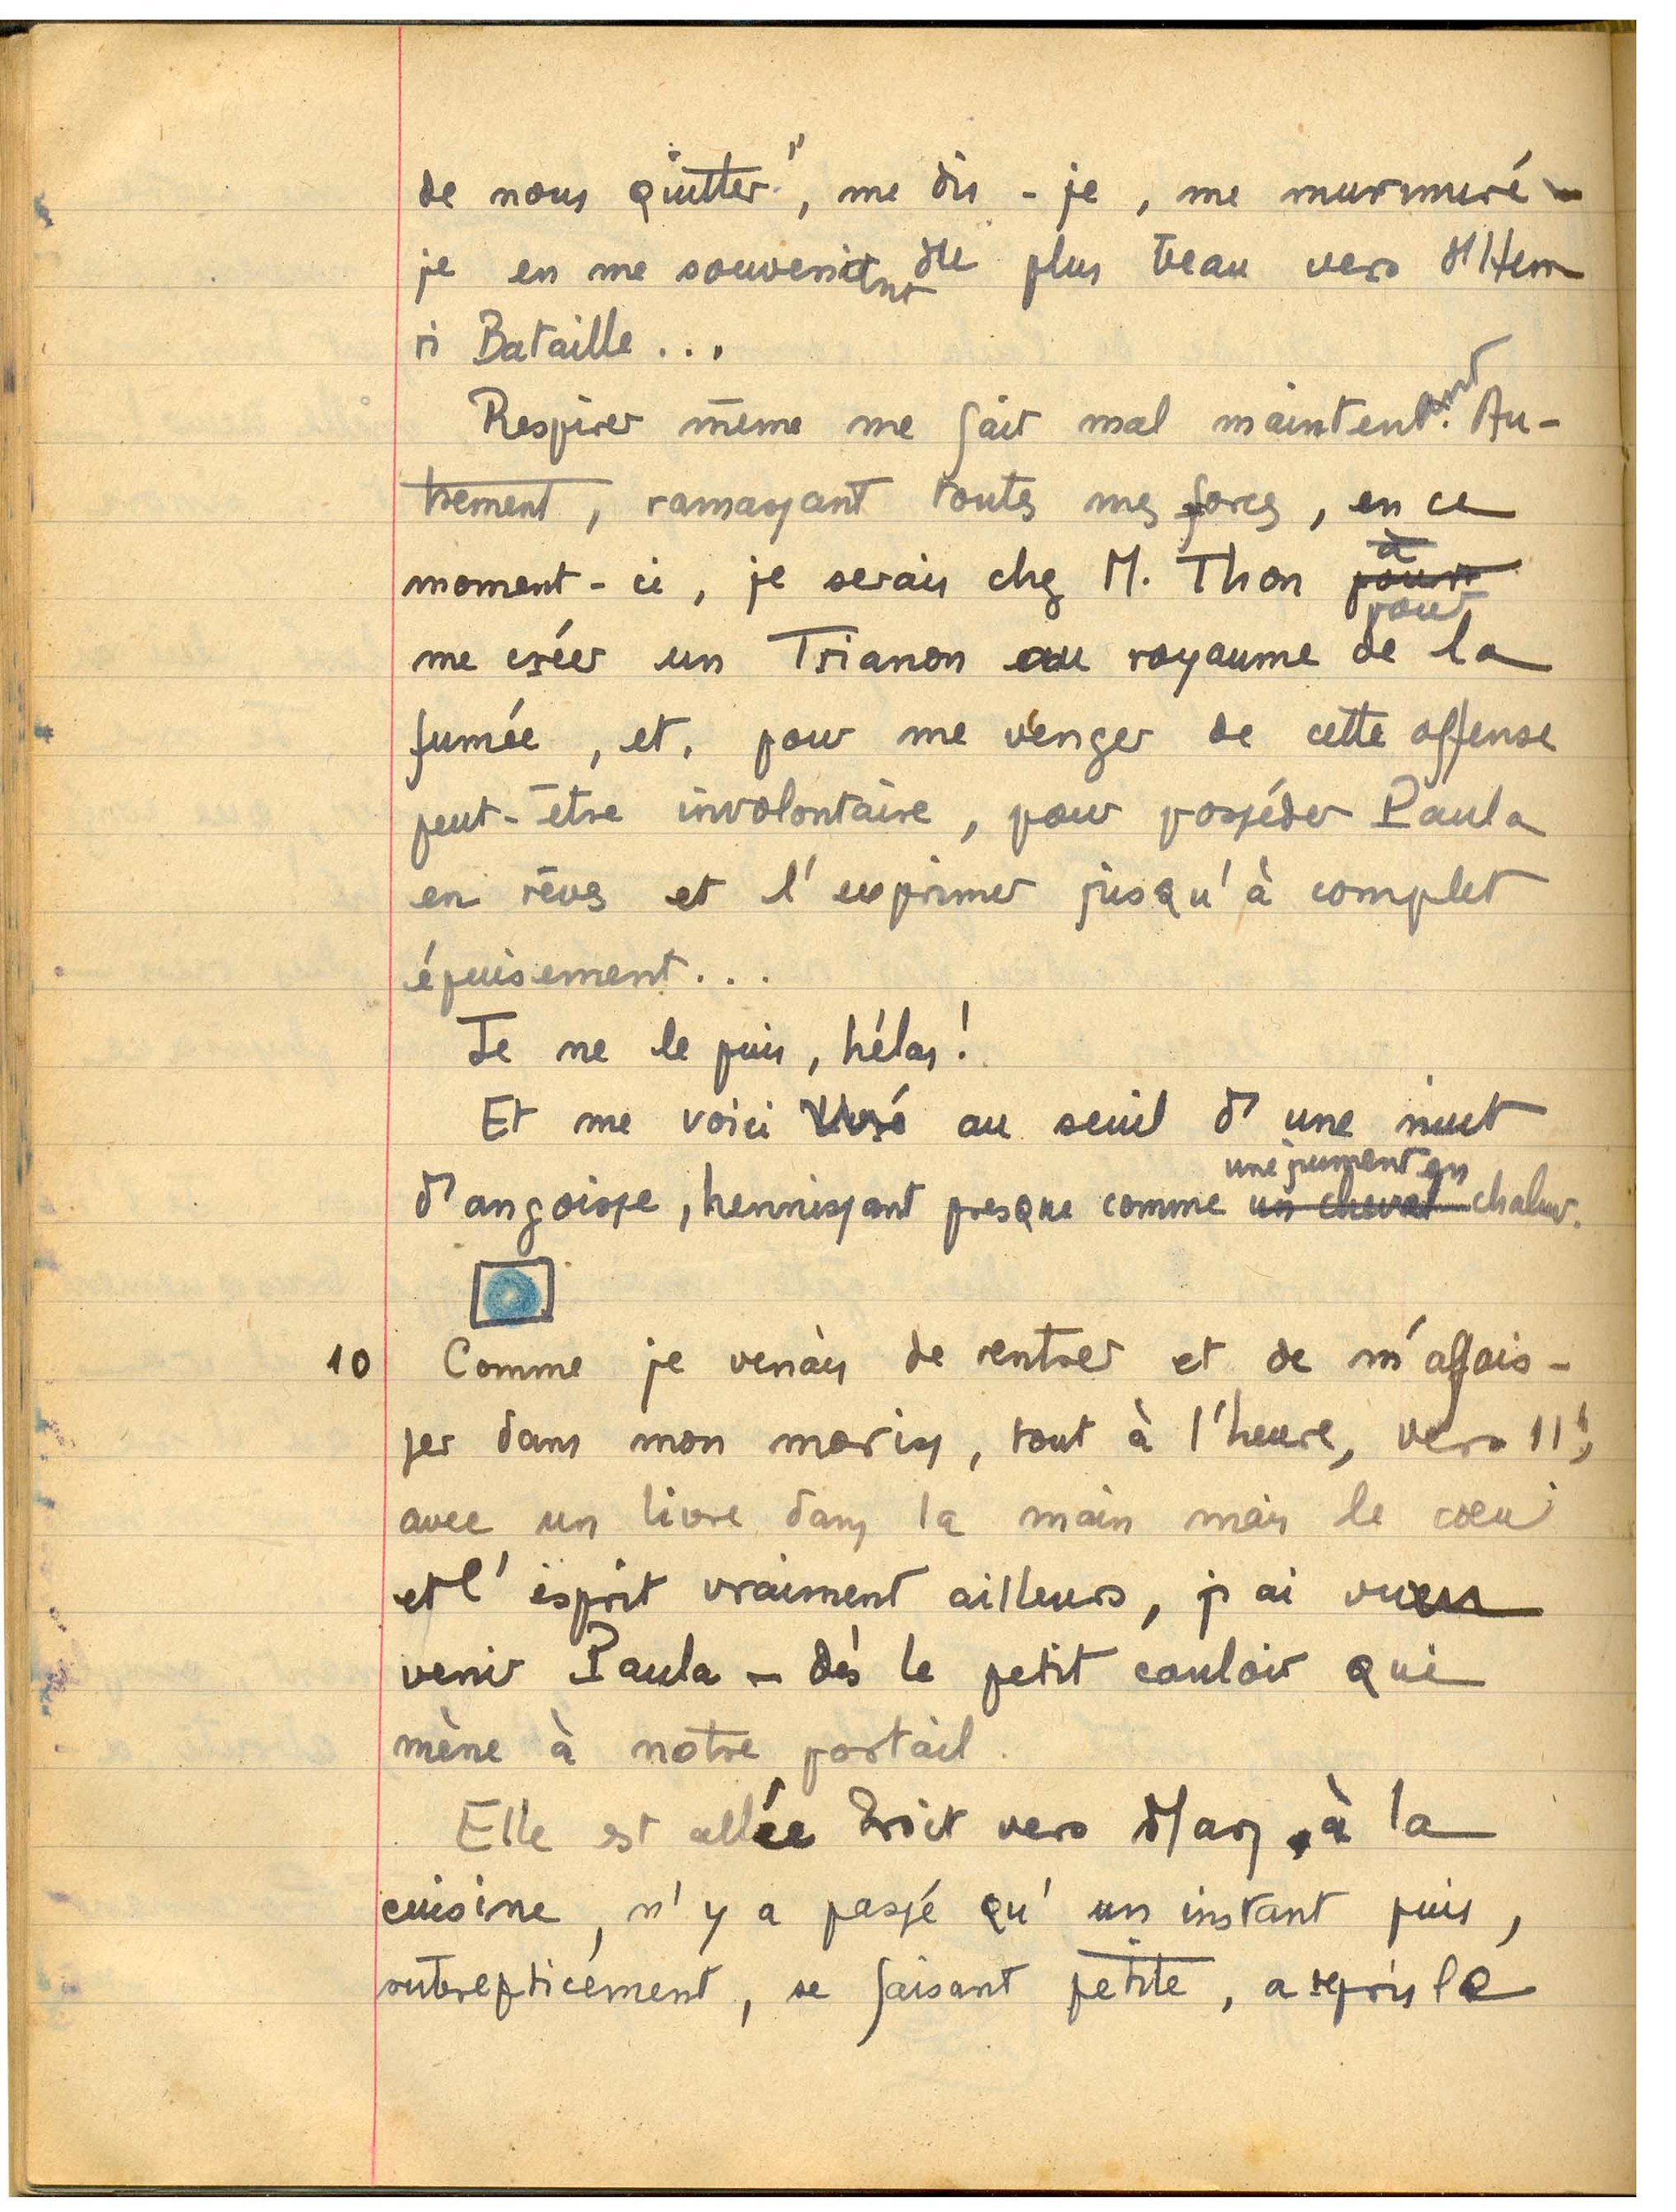 de nous quitter", me dis-je, me murmuré-
je en me souvenant du plus beau vers d'Hen
ri Bataille...
Respirer même me fait mal maintenant. Au-
trement, ramassant toutes mes forces, en ce
moment-ci, je serais chez M. Thon à pour
pour
me créer un Trianon au royaume de la
fumée, et, pour me venger de cette offense
peut-être involontaire, pour posséder Paula
en rêves et l'exprimer jusqu'à complet
épuisement...
Je ne le puis, hélas!
Et me voici au seuil d'une nuit
une jument en
d'angoisse, hennissant presque comme un cheval chaleur.
10 Comme je venais de rentrer et de m'affais-
ser dans mon moriss, tout à l'heure, vers 11h,
avec un livre dans la main mais le coeur
et l'esprit vraiment ailleurs, j'ai vu
venir Paula - dès le petit couloir qui
mène à notre portail.
Elle est allée droit vers Mary, à la
cuisine, n'y a passé qu'un instant puis,
subrepticement, se faisant petite, a repris le